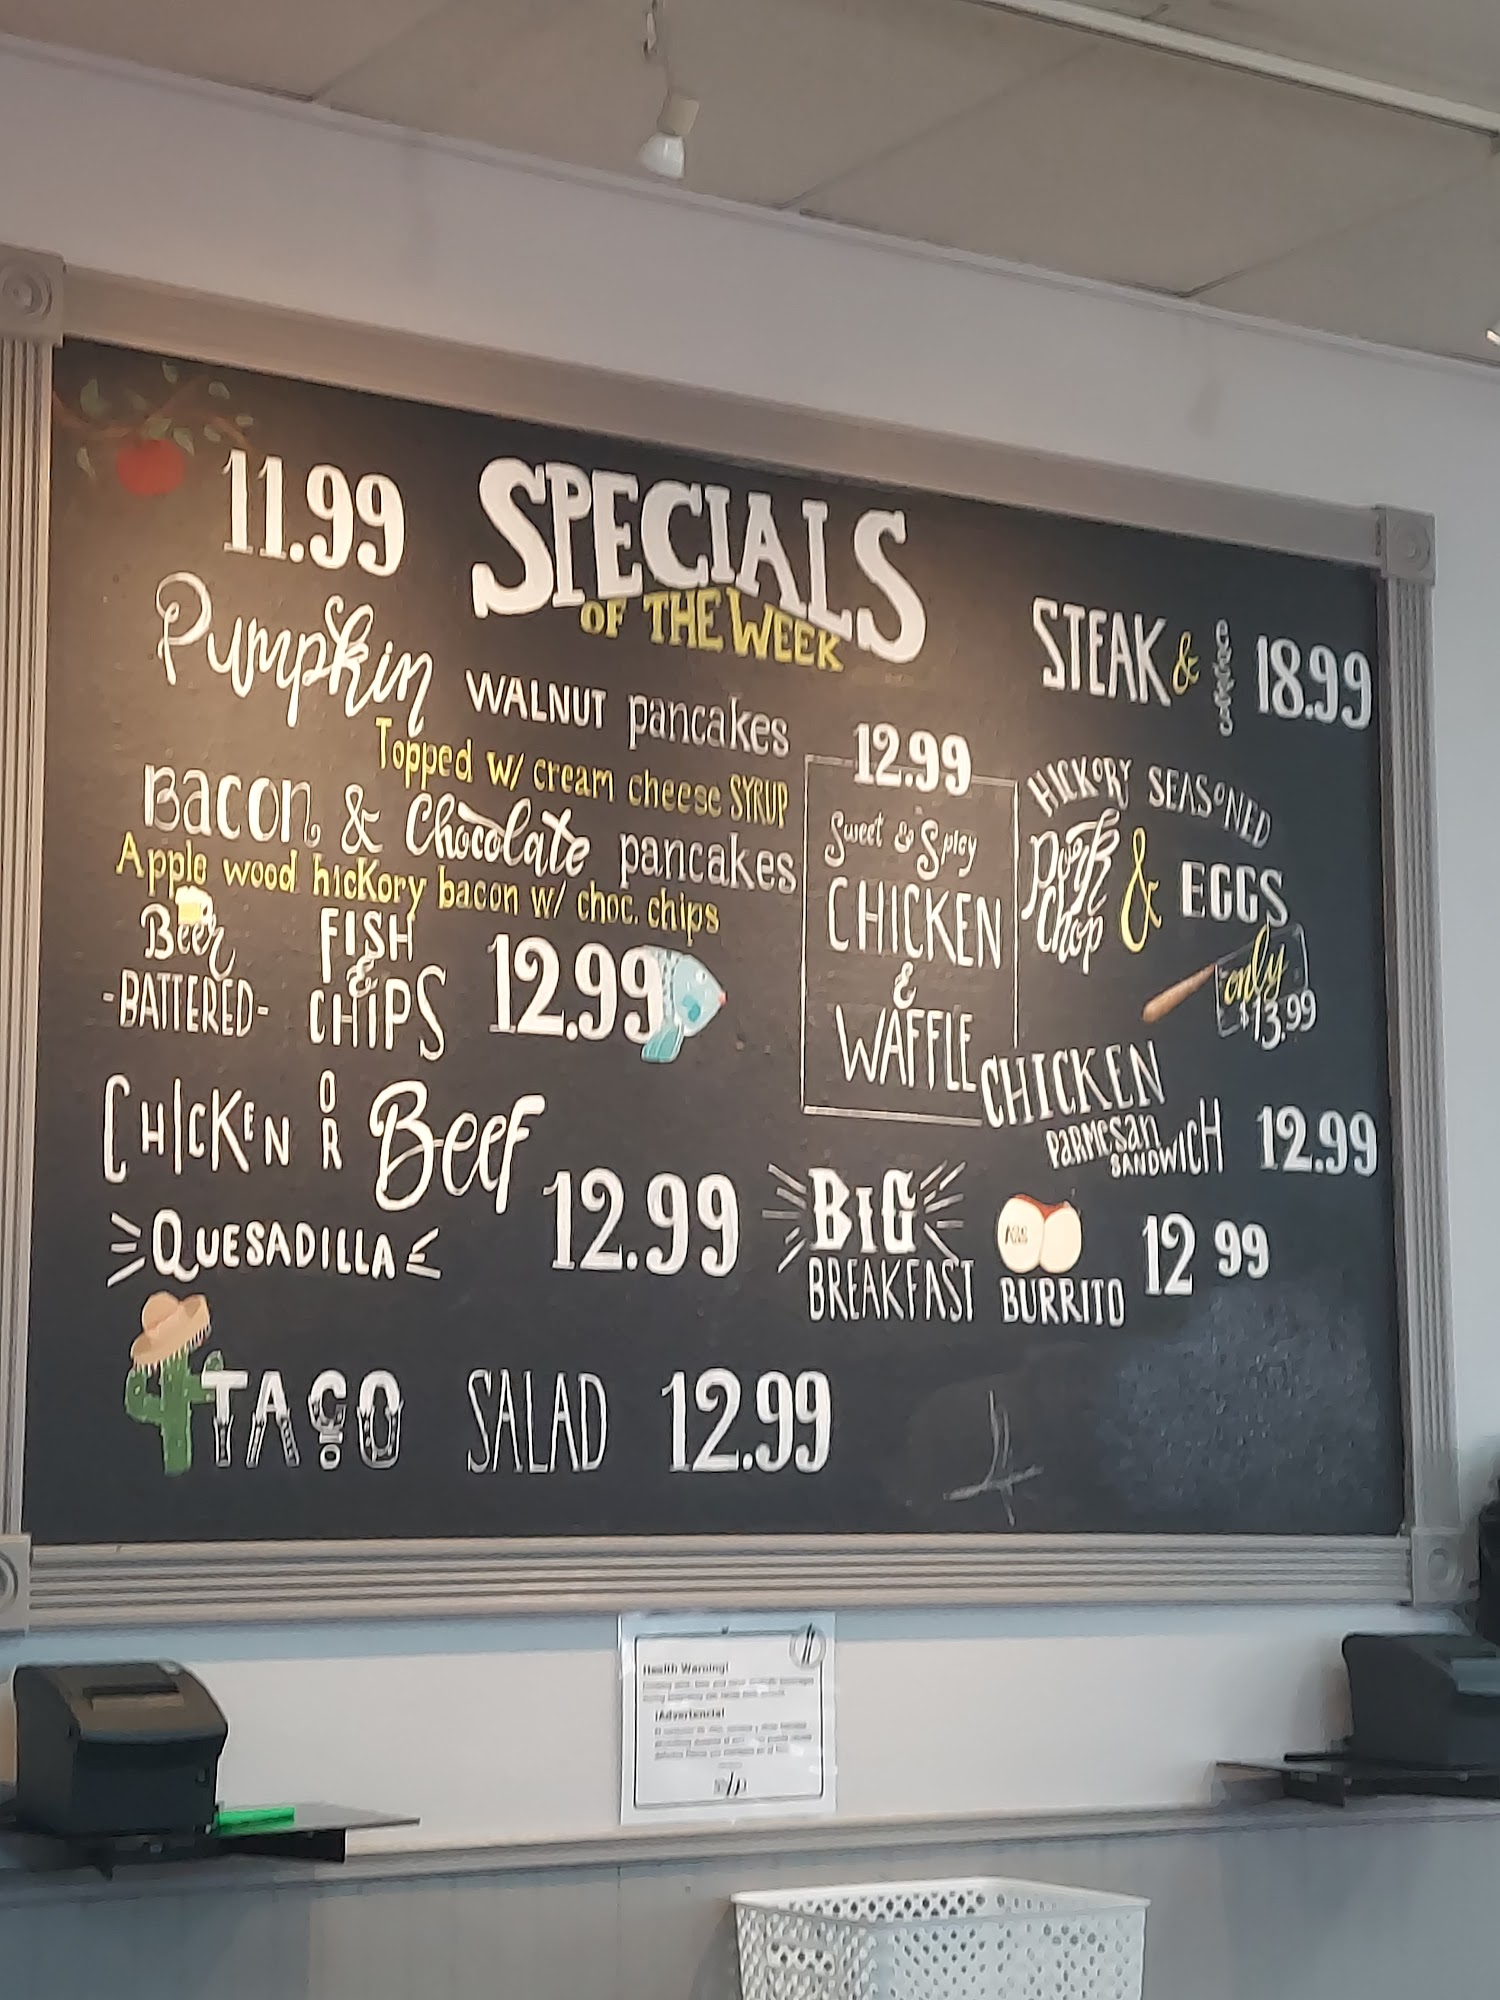 11.99
SPECIALS
OF THE WEEK
Pumpkin WALNUT pancakes
Topped w/ cream cheese SYRUP
Bacon & Chocolate pancakes
Apple wood hickory bacon w/ choc. chips
Beer
-BATTERED-
FISH
&
CHIPS
12.99
CHICKEN OR Beef
QUESADILLA
12.99
TACO SALAD 12.99
12.99
Sweet & Spicy
CHICKEN
&
WAFFLE
STEAK & 18.99
HICKORY SEASONED
Pork
Chop
& EGGS
only
$13.99
CHICKEN
PARMESAN
SANDWICH
12.99
BIG
BREAKFAST BURRITO
12 99
Health Warning!
¡Advertencia!